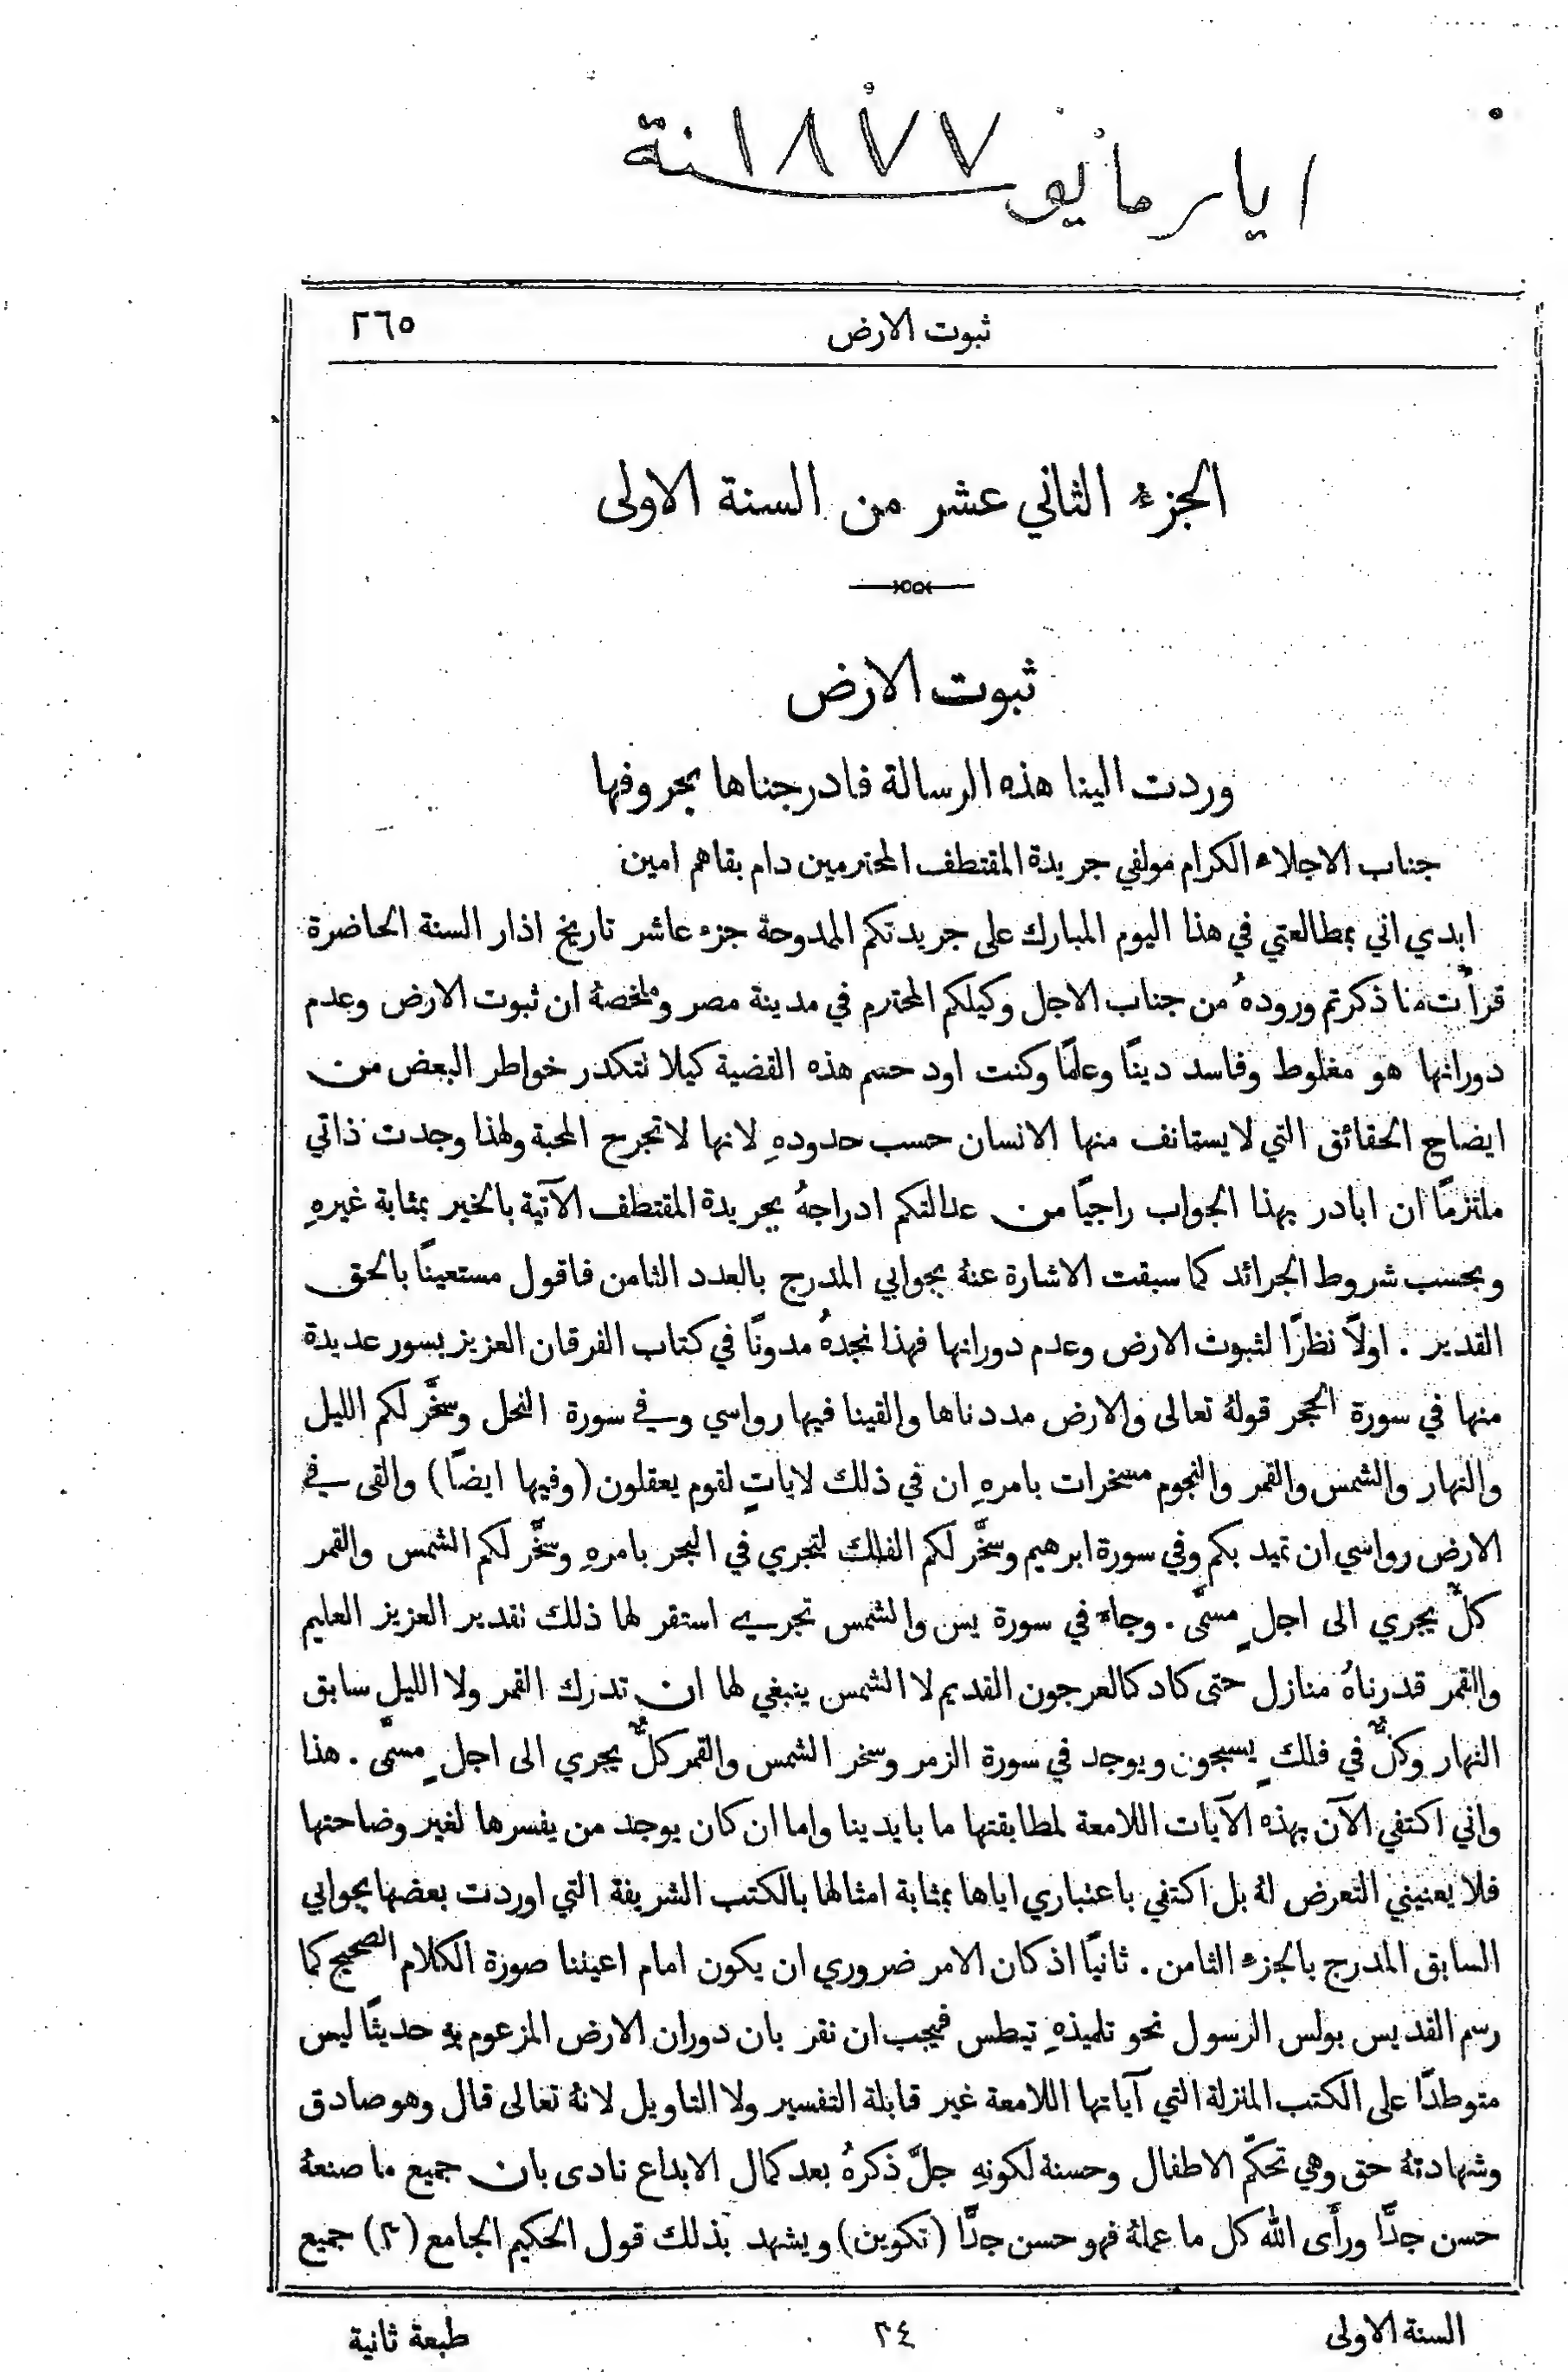 ايار مايو سنة ١٨٧٧
ثبوت الارض ٢٦٥
الجزء الثاني عشر من السنة الاولى
ثبوت الارض
وردت الينا هذه الرسالة فادرجناها بحروفها
جناب الاجلاء الكرام مولفي جريدة المقتطف المحترمين دام بقاهم امين
ابدي اني بمطالعتي في هذا اليوم المبارك على جريدتكم الممدوحة جزء عاشر تاريخ اذار السنة الحاضرة
قرأت ما ذكرتم ورودهُ من جناب الاجل وكيلكم المحترم في مدينة مصر وملخصهُ ان ثبوت الارض وعدم
دورانها هو مغلوط وفاسد دينًا وعلمًا وكنت اود حسم هذه القضية كيلا تتكدر خواطر البعض من
ايضاح الحقائق التي لا يستانف منها الانسان حسب حدودهِ لانها لا تجرح المحبة ولهذا وجدت ذاتي
ملتزمًا ان ابادر بهذا الجواب راجيًا من عدالتكم ادراجهُ بجريدة المقتطف الآتية بالخير بمثابة غيرهِ
وبحسب شروط الجرائد كما سبقت الاشارة عنهُ بجوابي المدرج بالعدد الثامن فاقول مستعينًا بالحق
القدير . اولًا نظرًا لثبوت الارض وعدم دورانها فهذا نجدهُ مدونًا في كتاب الفرقان العزيز بسور عديدة
منها في سورة الحجر قولهُ تعالى والارض مددناها والقينا فيها رواسي وفي سورة النحل وسخَّر لكم الليل
والنهار والشمس والقمر والنجوم مسخرات بامرهِ ان في ذلك لاياتٍ لقوم يعقلون (وفيها ايضًا) والقى في
الارض رواسي ان تميد بكم وفي سورة ابرهيم وسخَّر لكم الفلك لتجري في البحر بامرهِ وسخَّر لكم الشمس والقمر
كلٌّ يجري الى اجلٍ مسمًّى . وجاء في سورة يس والشمس تجري استقر لها ذلك تقدير العزيز العليم
والقمر قدرناهُ منازل حتى كاد كالعرجون القديم لا الشمس ينبغي لها ان تدرك القمر ولا الليل سابق
النهار وكلٌّ في فلكٍ يسبحون ويوجد في سورة الزمر وسخر الشمس والقمر كلٌّ يجري الى اجلٍ مسمًّى . هذا
واني اكتفي الآن بهذه الآيات اللامعة لمطابقتها ما بايدينا واما ان كان يوجد من يفسرها لغير وضاحتها
فلا يعنيني التعرض لهُ بل اكتفي باعتباري اياها بمثابة امثالها بالكتب الشريفة التي اوردت بعضها بجوابي
السابق المدرج بالجزء الثامن . ثانيًا اذ كان الامر ضروري ان يكون امام اعيننا صورة الكلام الصحيح كما
رسم القديس بولس الرسول نحو تلميذهِ تيطس فيجب ان نقر بان دوران الارض المزعوم بهِ حديثًا ليس
متوطدًا على الكتب المنزلة التي آياتها اللامعة غير قابلة التفسير ولا التاويل لانهُ تعالى قال وهو صادق
وشهادتهُ حق وهي تحكّم الاطفال وحسنة لكونهِ جلَّ ذكرهُ بعد كمال الابداع نادى بان جميع ما صنعهُ
حسن جدًّا ورأى الله كل ما عملهُ فهو حسن جدًّا (تكوين) ويشهد بذلك قول الحكيم الجامع (٢) جميع
السنة الاولى ٢٤ طبعة ثانية